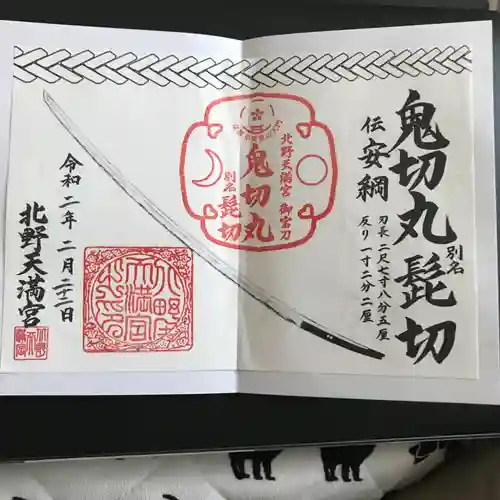 鬼切丸
別名
髭切
伝安綱
刃長 二尺七寸八分五厘
反り 一寸二分二厘
北野天満宮 御宝刀
鬼切丸
別名
髭切
令和二年 二月 二十二日
北野天満宮